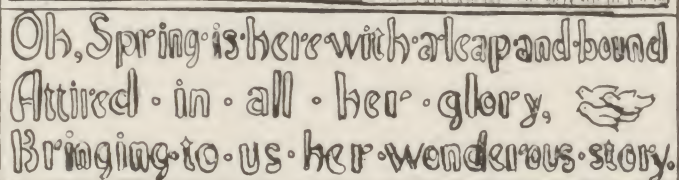 Oh, Spring·is·here·with·a·leap·and·bound
Attired · in · all · her · glory,
Bringing·to·us·her·wonderous·story.